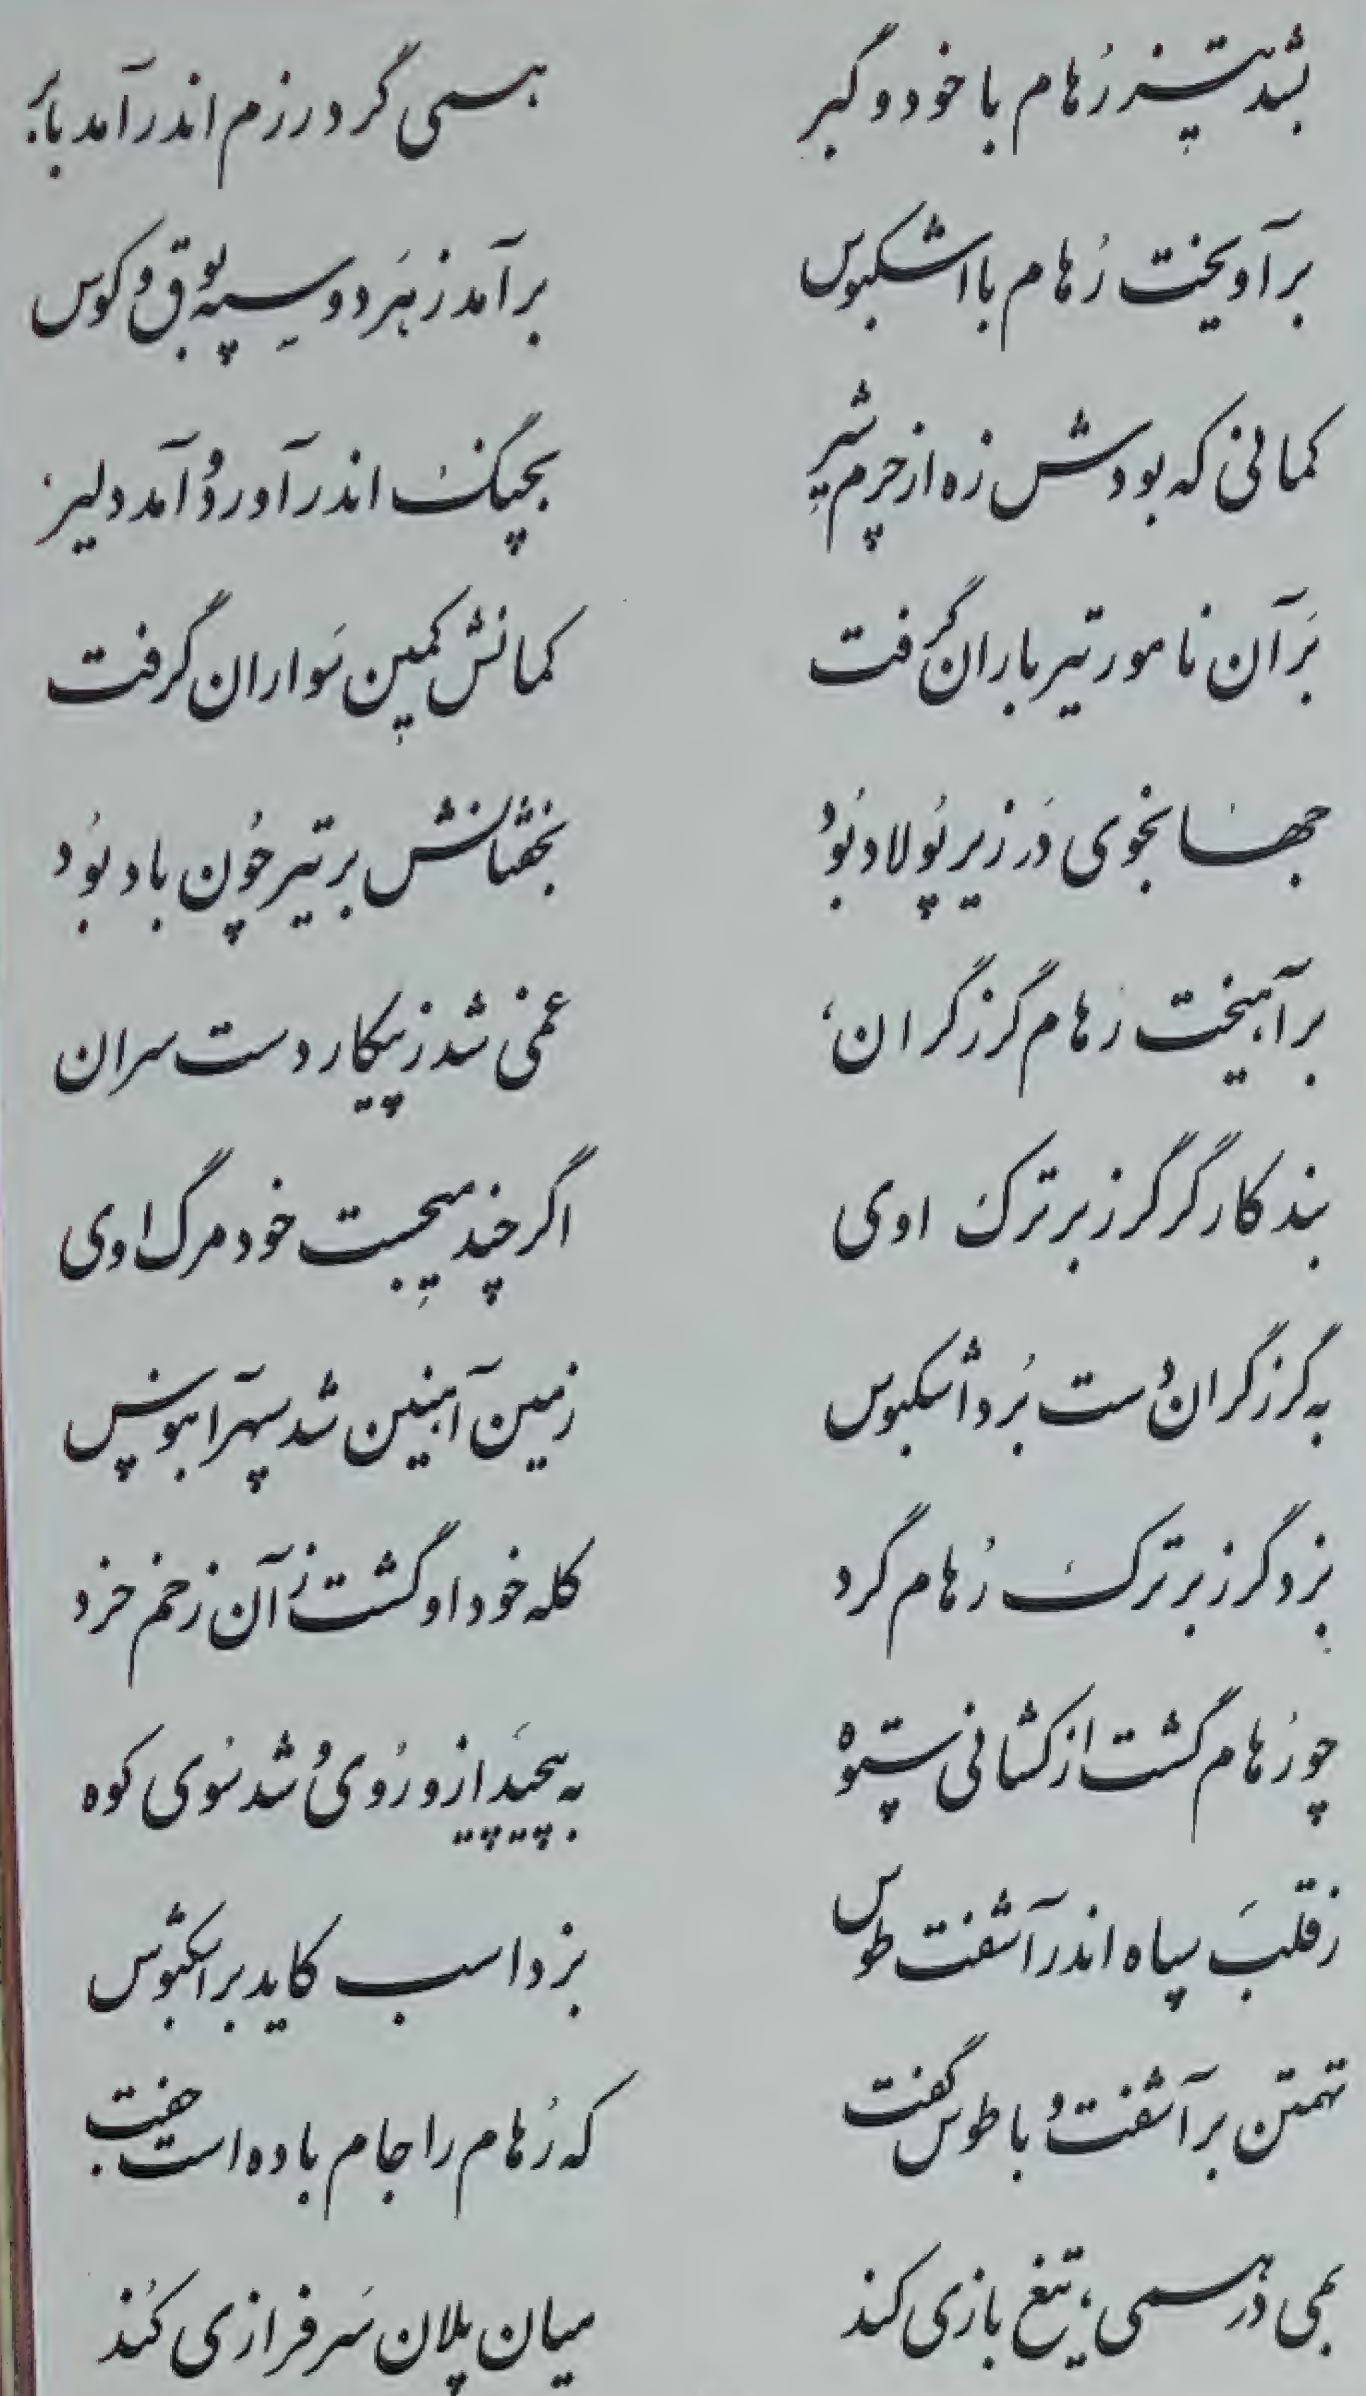 بشد تیز رُهام با خود و گبر
همی گرد رزم اندر آمد بابر
برآویخت رُهام با اشکبوس
برآمد ز هَر دو سپه بُوق و کوس
کمانی که بودش زه از چرم شیر
بچنگ اندر آورد و آمد دلیر
بَر آن نامور تیرباران گرفت
کمانش کمین سَواران گرفت
جهانجوی دَر زیر پُولاد بُود
بخفتانش بر تیر چُون باد بُود
برآهیخت رُهام گرز گران،
غمی شد ز پیکار دست سران
بند کارگر گرز بر ترک اوی
اگر چند میجست خود مرگ اوی
به گرز گران دست بُرد اشکبوس
زمین آهنین شد سپهر آبنوس
بزد گرز بر ترک رُهام گرد
کله خود او گشت زآن زخم خرد
چو رُهام گشت از کشانی ستوه
به پیچَید ازو رُوی و شد سُوی کوه
ز قلبَ سپاه اندر آشفت طوس
بزد اسب کاید بر اشکبُوس
تهمتن برآشفت و با طوس گفت
که رُهام را جام باده است جفت
بمی دَر همی، تیغ بازی کند
میان یلان سَرفرازی کُند